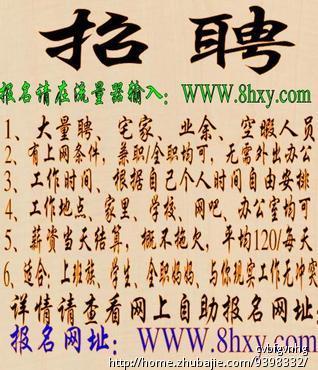 招聘
报名请在流量器输入：WWW.8hxy.com
1、大量聘、宅家、业余、空暇人员
2、有上网条件，兼职/全职均可，无需外出办公
3、工作时间、根据自己个人时间自由安排
4、工作地点、家里、学校、网吧、办公室均可
5、薪资当天结算，概不拖欠，平均120/每天
6、适合：上班族、学生、全职妈妈、与你现实工作无冲突
详情请查看网上自助报名网址：
报名网址：WWW.8hxy.com
http://home.zhubajie.com/9398332/